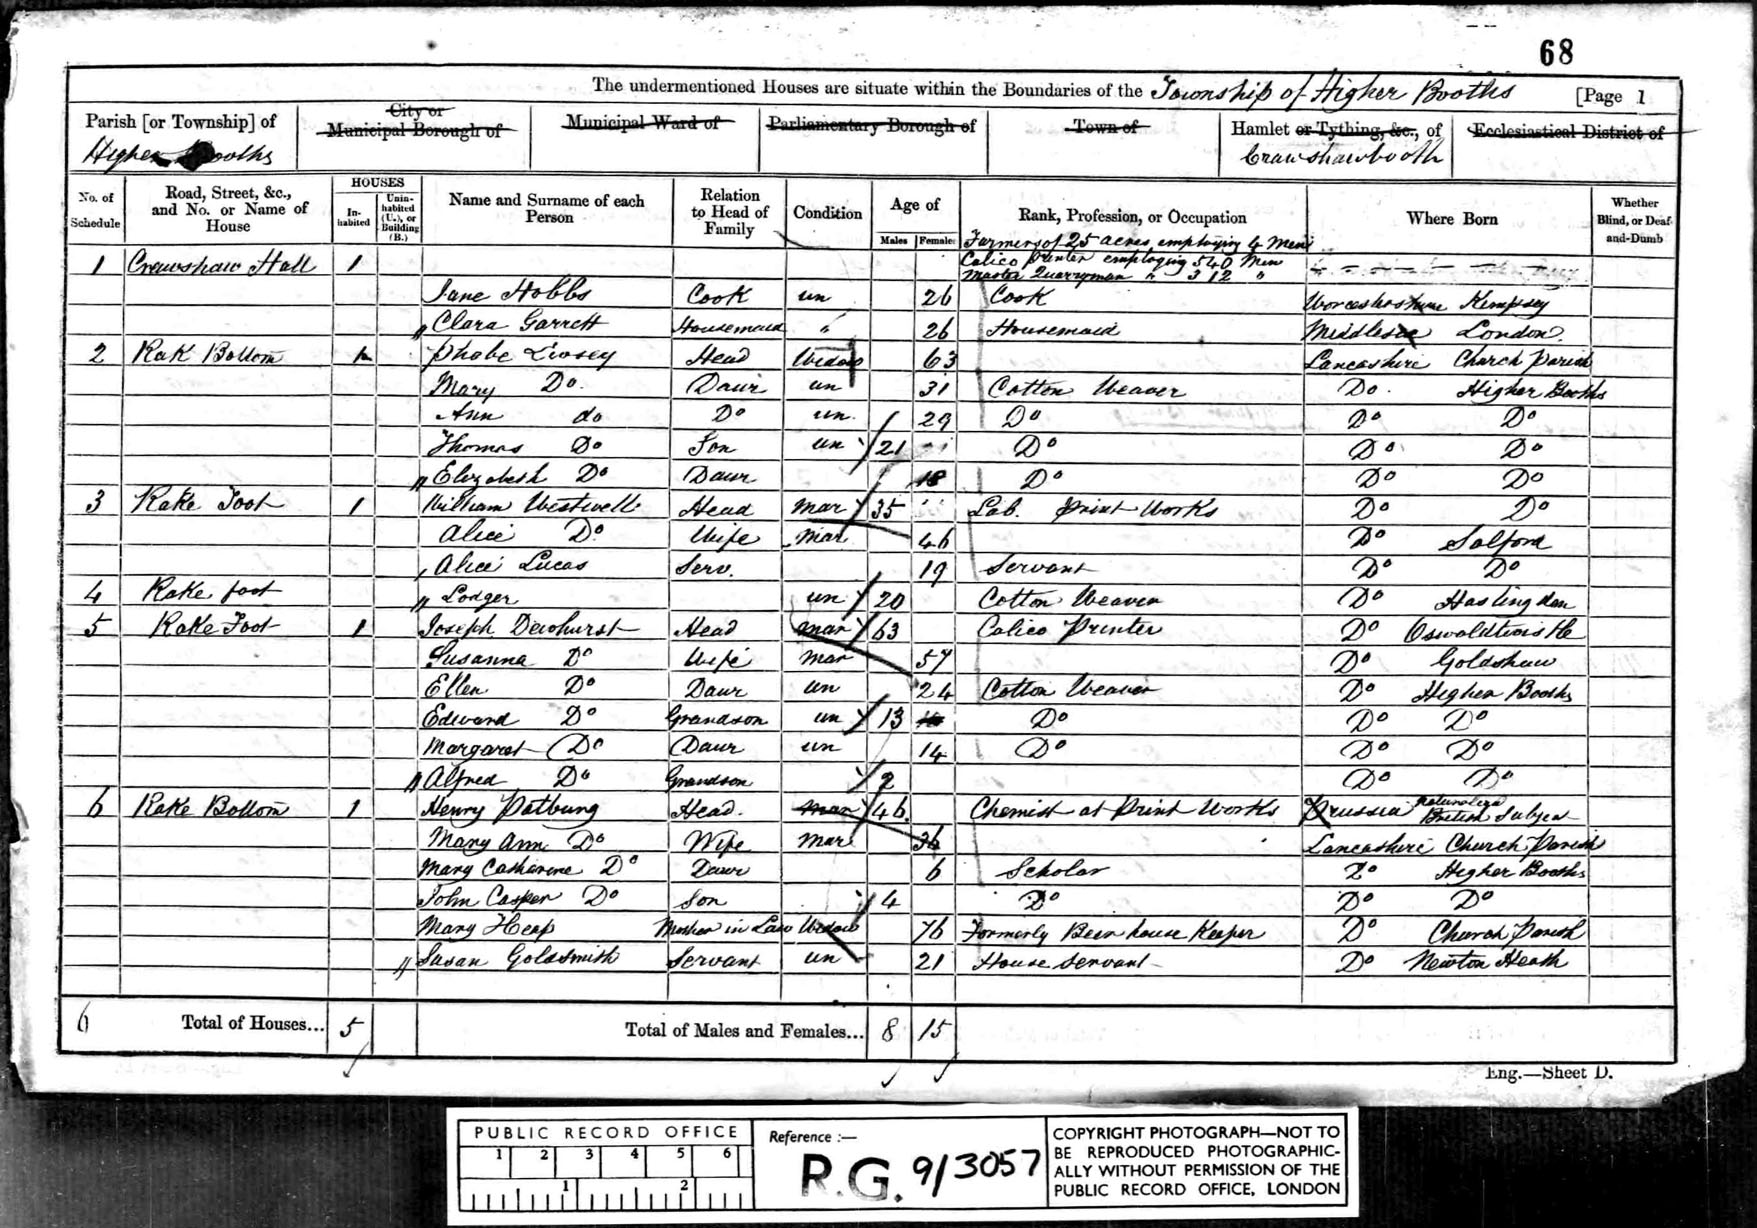 68
The undermentioned Houses are situate within the Boundaries of the Township of Higher Booths [Page 1
Parish [or Township] of City or Municipal Borough of Municipal Ward of Parliamentary Borough of Town of Hamlet or Tything, &c., of Ecclesiastical District of
Higher Booths Crawshawbooth
No. of Schedule Road, Street, &c., and No. or Name of House HOUSES Inhabited Uninhabited (U.), or Building (B.) Name and Surname of each Person Relation to Head of Family Condition Age of Males Females Rank, Profession, or Occupation Where Born Whether Blind, or Deaf-and-Dumb
Farmer of 25 acres employing 6 Men
1 Crawshaw Hall 1 Calico Printer employing 540 Men
Master Quarryman " 312 "
Jane Hobbs Cook un 26 Cook Worcestershire Kempsey
" Clara Garrett Housemaid " 26 Housemaid Middlesex London
2 Rak Bottom 1 Phobe Livsey Head Widow 63 Lancashire Church Parish
Mary Do. Daur un 31 Cotton Weaver Do. Higher Booths
Ann do Do un. 29 Do Do Do
Thomas Do Son un 21 Do Do Do
" Elizabeth Do Daur 18 Do Do Do
3 Rake Foot 1 William Westwell Head Mar 35 Lab. Print Works Do Do
Alice Do. Wife Mar 46 Do Salford
Alice Lucas Serv. 19 Servant Do Do
4 Rake foot " Lodger un 20 Cotton Weaver Do Haslingden
5 Rake Foot 1 Joseph Dewhurst Head Mar 63 Calico Printer Do Oswaldtwistle
Susanna Do Wife Mar 57 Do Goldshaw
Ellen Do Daur un 24 Cotton Weaver Do Higher Booths
Edward Do Grandson un 13 Do Do Do
Margaret Do Daur un 14 Do Do Do
" Alfred Do Grandson 2 Do Do
6 Rake Bottom 1 Henry Head Mar 46 Chemist at Print Works Prussia Naturalized British Subject
Mary Ann Do Wife Mar 36 Lancashire Church Parish
Mary Catharine Do Daur 6 Scholar Do Higher Booths
John Casper Do Son 4 Do Do Do
Mary Heap Mother in Law Widow 76 Formerly Beer house Keeper Do Church Parish
" Susan Goldsmith Servant un 21 House servant Do Newton Heath
6 Total of Houses... 5 Total of Males and Females... 8 15
Eng.—Sheet D.
PUBLIC RECORD OFFICE
1 2 3 4 5 6
1 2
Reference :—
R.G. 9/3057
COPYRIGHT PHOTOGRAPH—NOT TO
BE REPRODUCED PHOTOGRAPHIC-
ALLY WITHOUT PERMISSION OF THE
PUBLIC RECORD OFFICE, LONDON